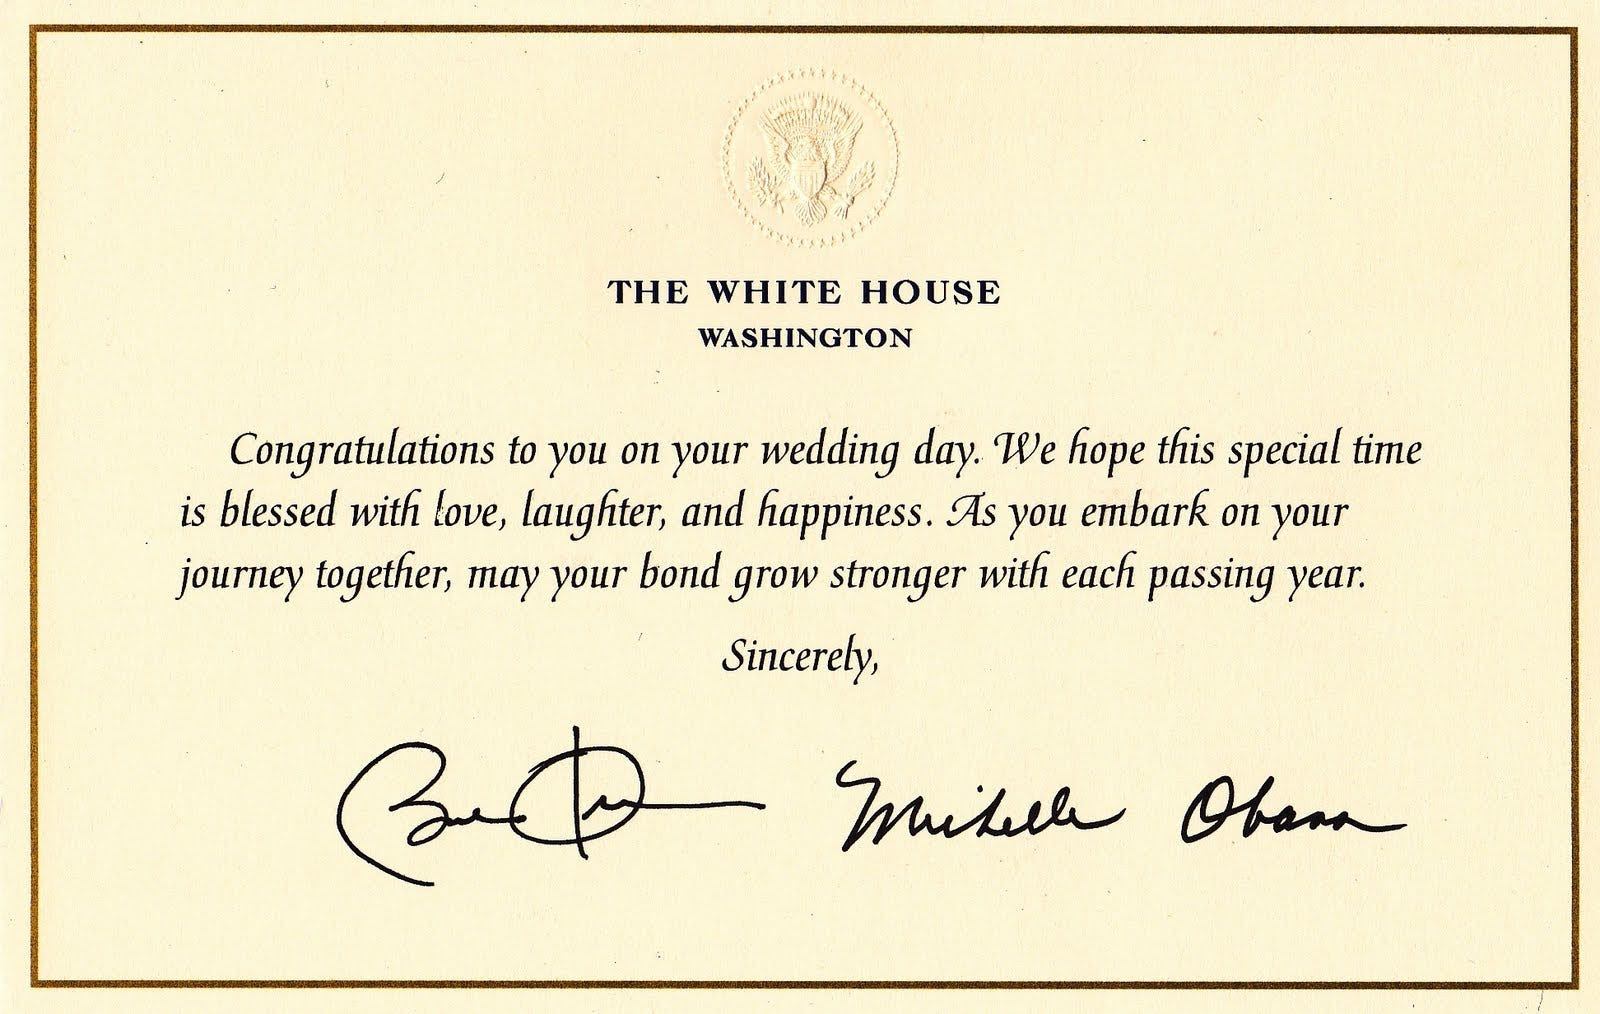 THE WHITE HOUSE
WASHINGTON
Congratulations to you on your wedding day. We hope this special time
is blessed with love, laughter, and happiness. As you embark on your
journey together, may your bond grow stronger with each passing year.
Sincerely,
Barack Obama Michelle Obama